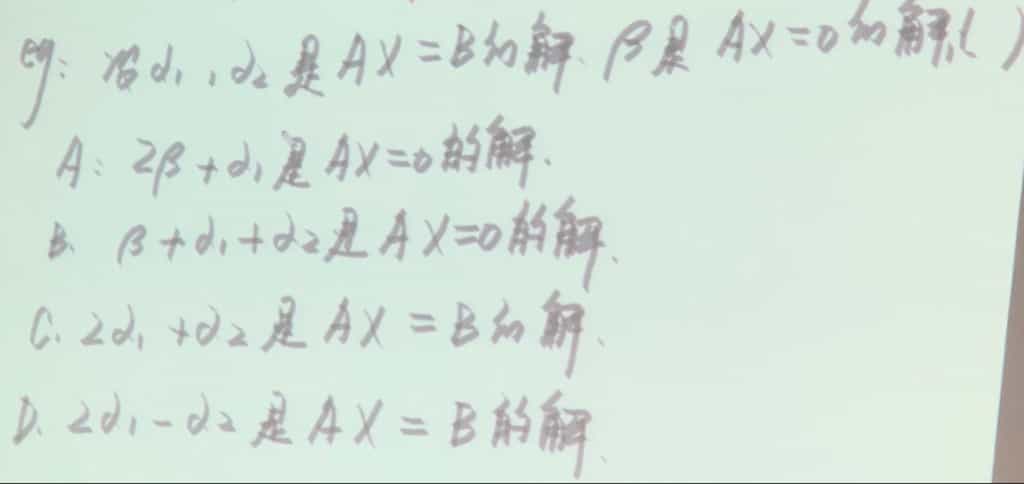 eg: 若α₁,α₂是AX=B的解、β是AX=0的解,( )
A: 2β+α₁是AX=0的解.
B. β+α₁+α₂是AX=0的解.
C. 2α₁+α₂是AX=B的解.
D. 2α₁-α₂是AX=B的解.